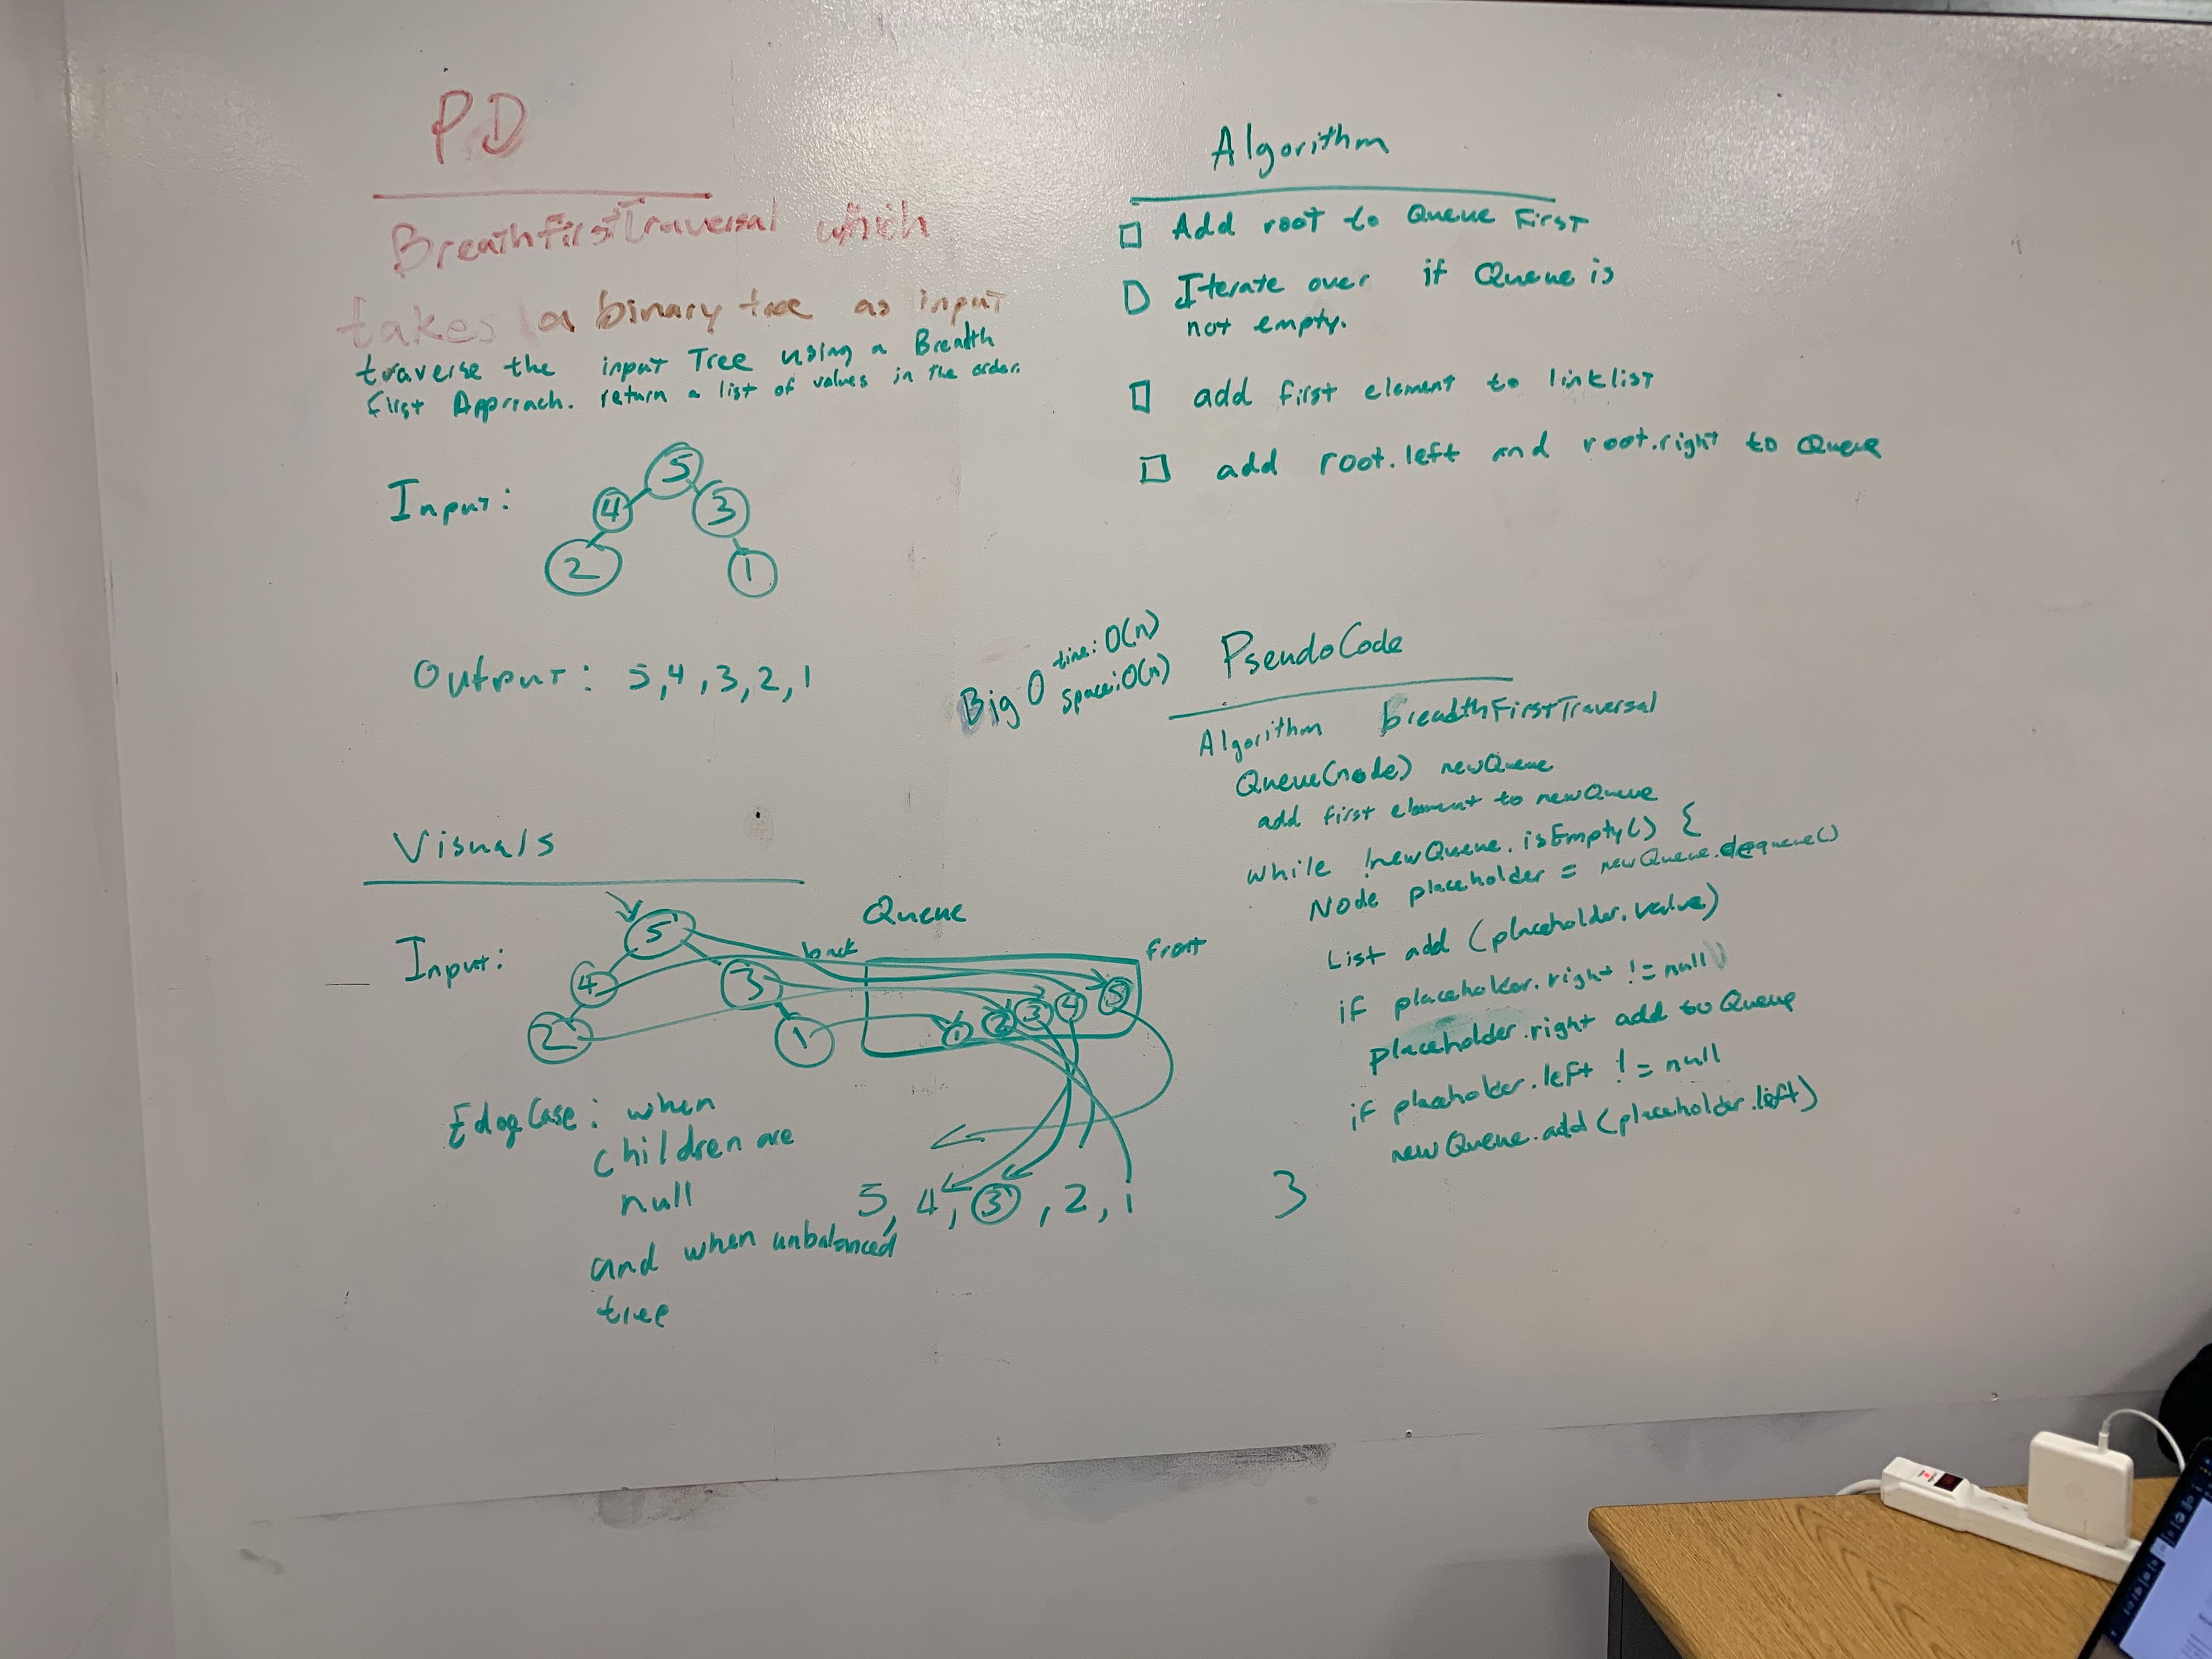 PD
BreathfirstTraversal which
takes a binary tree as input
traverse the input Tree using a Breadth
First Approach. return a list of values in the order.
Input:
5
4 3
2 1
Output: 5,4,3,2,1
Visuals
Input:
5
4 3
2 1
Queue
back front
1 2 3 4 5
5, 4, 3, 2, 1
EdgeCase: when
children are
null
and when unbalanced
tree
Algorithm
Add root to Queue First
Iterate over if Queue is
not empty.
add first element to linklist
add root.left and root.right to Queue
Big O time: O(n)
space: O(n)
PseudoCode
Algorithm breadthFirstTraversal
Queue(node) newQueue
add first element to newQueue
while !newQueue.isEmpty() {
Node placeholder = newQueue.dequeue()
List add (placeholder.value)
if placeholder.right != null
placeholder.right add to Queue
if placeholder.left != null
newQueue.add(placeholder.left)
}